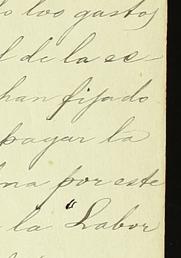 do los gastos
l de la es
han fijado
pagar la
ma por este
la "Labor